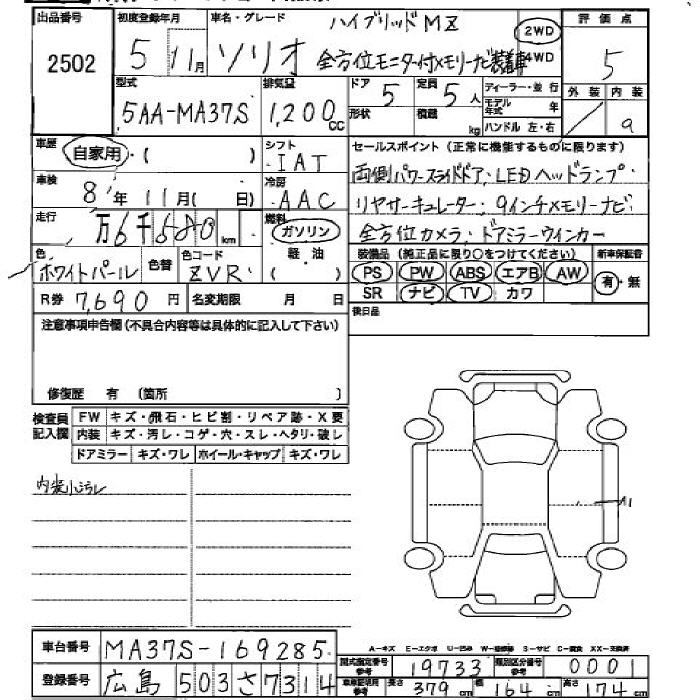 出品番号 初度登録年月 車名・グレード ハイブリッドMZ 2WD 評価点
2502 5 11月 ソリオ 全方位モニター付メモリーナビ装着車 4WD 5
型式 排気量 ドア 定員 ディーラー・並行 外装 内装
5AA-MA37S 1,200cc 5 5人 モデル年式 年
形状 積載 kg ハンドル 左・右 a
車歴 シフト セールスポイント(正常に機能するものに限ります)
自家用・( ) IAT 両側パワースライドドア・LEDヘッドランプ・
車検 冷房
8年11月(日) AAC リヤサーキュレーター・9インチメモリーナビ
走行 万6千580km 燃料 ガソリン 全方位カメラ・ドアミラーウインカー
色 色替 色コード 軽・油 装備品(純正品に限り○をつけてください) 新車保証書
ホワイトパール ZVR ( ) PS PW ABS エアB AW 有・無
R券 7,690円 名変期限 月 日 SR ナビ TV カワ
注意事項申告欄(不具合内容等は具体的に記入して下さい) 後日品
修復歴 有 (箇所 )
検査員記入欄 FW キズ・飛石・ヒビ割・リペア跡・X要
内装 キズ・汚レ・コゲ・穴・スレ・ヘタリ・破レ
ドアミラー キズ・ワレ ホイール・キャップ キズ・ワレ
内装小汚レ
A1
A-キズ E-エクボ U-凹み W-補修跡 S-サビ C-腐食 XX-交換済
車台番号 MA37S-169285 型式指定番号 参考 19733 類別区分番号 参考 0001
登録番号 広島 503 さ 7314 車車証明用 参考 長さ 379cm 幅 164cm 高さ 174cm